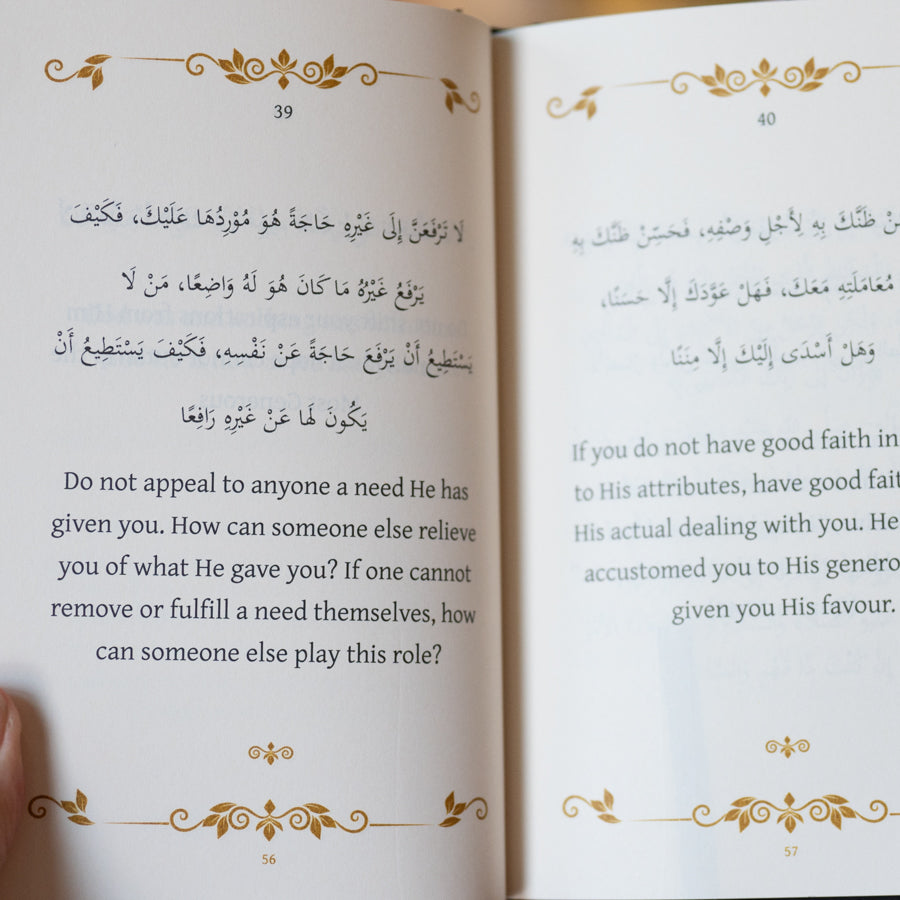 39
لَا تَرْفَعَنَّ إِلَى غَيْرِهِ حَاجَةً هُوَ مُوْرِدُهَا عَلَيْكَ، فَكَيْفَ
يَرْفَعُ غَيْرُهُ مَا كَانَ هُوَ لَهُ وَاضِعًا، مَنْ لَا
يَسْتَطِيعُ أَنْ يَرْفَعَ حَاجَةً عَنْ نَفْسِهِ، فَكَيْفَ يَسْتَطِيعُ أَنْ
يَكُونَ لَهَا عَنْ غَيْرِهِ رَافِعًا
Do not appeal to anyone a need He has
given you. How can someone else relieve
you of what He gave you? If one cannot
remove or fulfill a need themselves, how
can someone else play this role?
56
40
ظَنَّكَ بِهِ لِأَجْلِ وَصْفِهِ، فَحَسِّنْ ظَنَّكَ بِهِ
مُعَامَلَتِهِ مَعَكَ، فَهَلْ عَوَّدَكَ إِلَّا حَسَنًا،
وَهَلْ أَسْدَى إِلَيْكَ إِلَّا مِنَنًا
If you do not have good faith in
to His attributes, have good fait
His actual dealing with you. He
accustomed you to His genero
given you His favour.
57